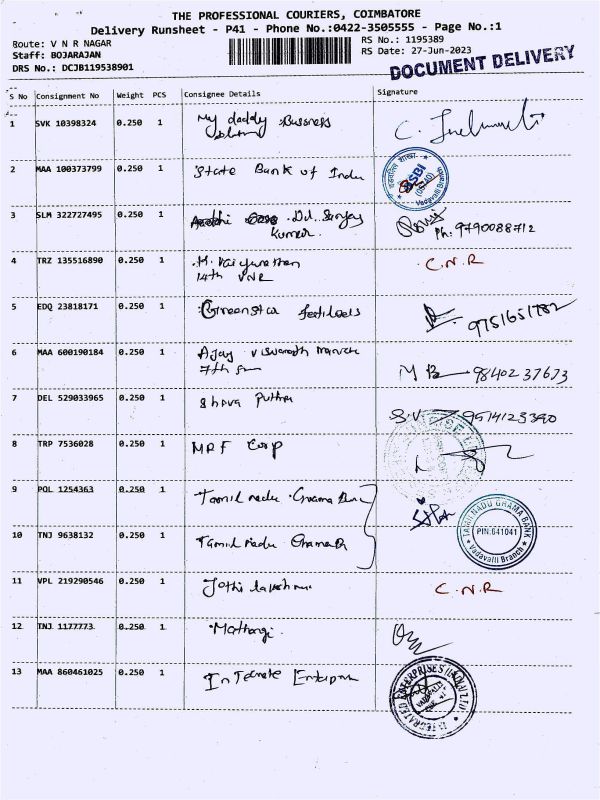 THE PROFESSIONAL COURIERS, COIMBATORE
Delivery Runsheet - P41 - Phone No.:0422-3505555 - Page No.:1
Route: V N R NAGAR
RS No.: 1195389
Staff: BOJARAJAN
RS Date: 27-Jun-2023
DRS No.: DCJB119538901
DOCUMENT DELIVERY
S No Consignment No Weight PCS Consignee Details Signature
1 SVK 10398324 0.250 1 My daddy Bussness
2 MAA 100373799 0.250 1 State Bank of India
SBI
Vadavalli Branch
3 SLM 322727495 0.250 1 Dd. Sanjay
Kumar
Ph: 9790088712
4 TRZ 135516890 0.250 1 C.N.R
14th VNR
5 EDQ 23818171 0.250 1 Greenstar 9751651782
6 MAA 600190184 0.250 1 Ajay Viswanath
7th
M B 9840237673
7 DEL 529033965 0.250 1 Shiva S.V 9514123390
8 TRP 7536028 0.250 1 MRF Corp
9 POL 1254363 0.250 1 Tamil nadu Grama
10 TNJ 9638132 0.250 1 Tamil nadu Grama
TAMIL NADU GRAMA BANK
PIN:641041
Vadavalli Branch
11 VPL 219290546 0.250 1 Jothi lakshmi C.N.R
12 TNJ 1177773 0.250 1 Mathangi
13 MAA 860461025 0.250 1 Enterprises